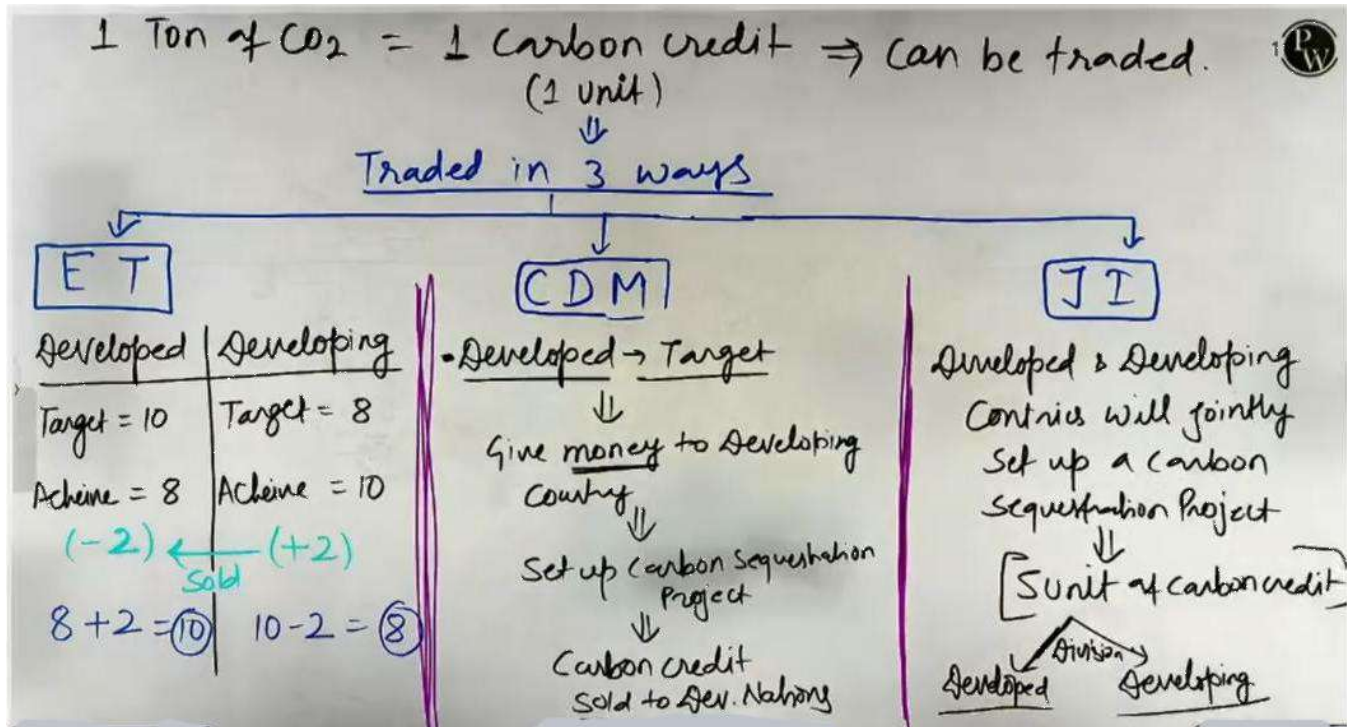 1 Ton of CO2 = 1 Carbon credit ⇒ Can be traded.
(1 unit)
PW
Traded in 3 ways
ET
Developed | Developing
Target = 10 | Target = 8
Acheive = 8 | Acheive = 10
(-2) ← (+2)
Sold
8+2=10 10-2=8
CDM
• Developed → Target
Give money to Developing
Country
Set up Carbon Sequestration
Project
Carbon credit
Sold to Dev. Nations
JI
Developed & Developing
Contries will jointly
Set up a Carbon
Sequestration Project
[5 unit of Carbon credit]
Division
Developed Developing